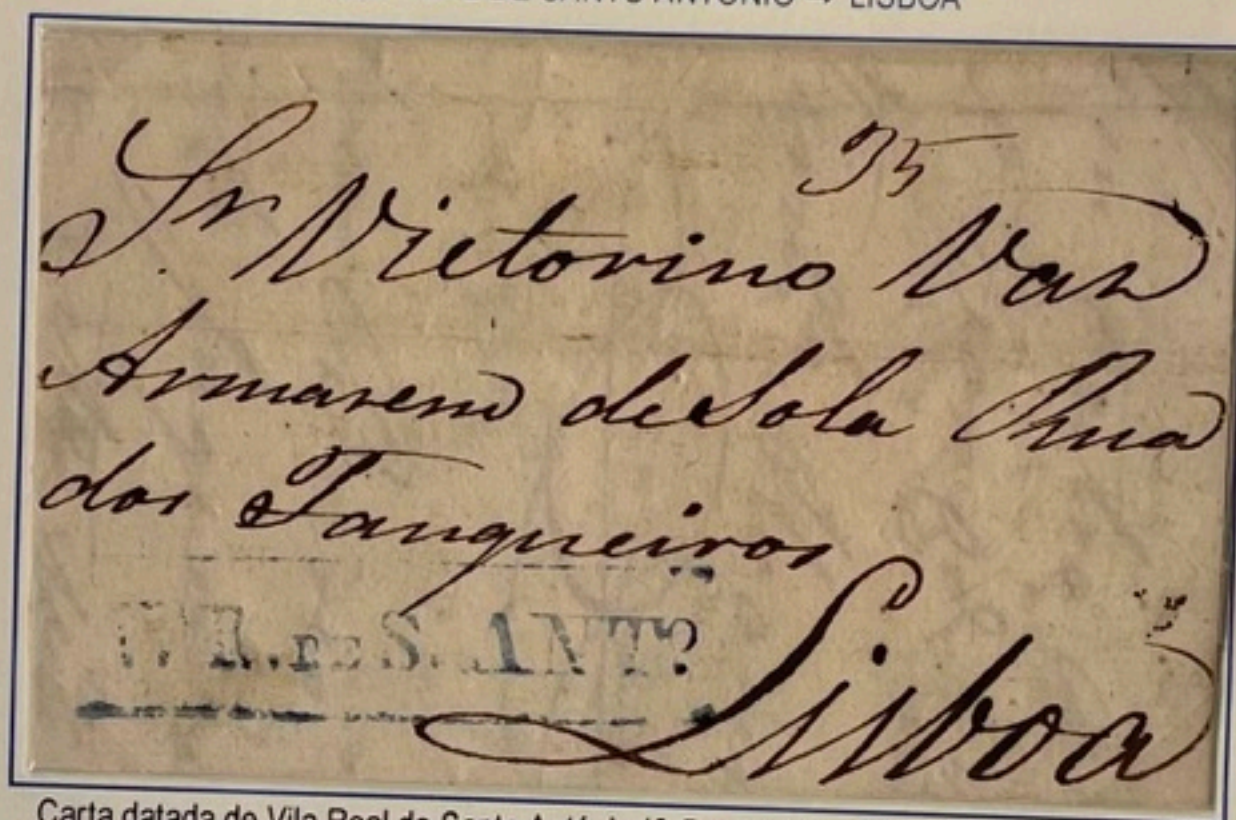 SANTO ANTÓNIO → LISBOA
35
Sr Victorino Vaz
Armazem de Sola Rua
dos Fanqueiros
V. R. DE S. ANTº
Lisboa
Carta datada de Vila Real de Santo António